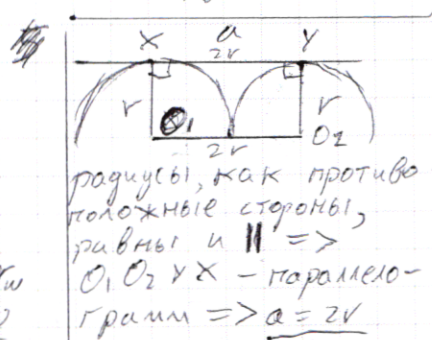 X a Y
2r
r O₁ r
2r O₂
радиусы, как противо
положные стороны,
равны и || =>
O₁O₂YX - параллело-
грамм => a = 2r